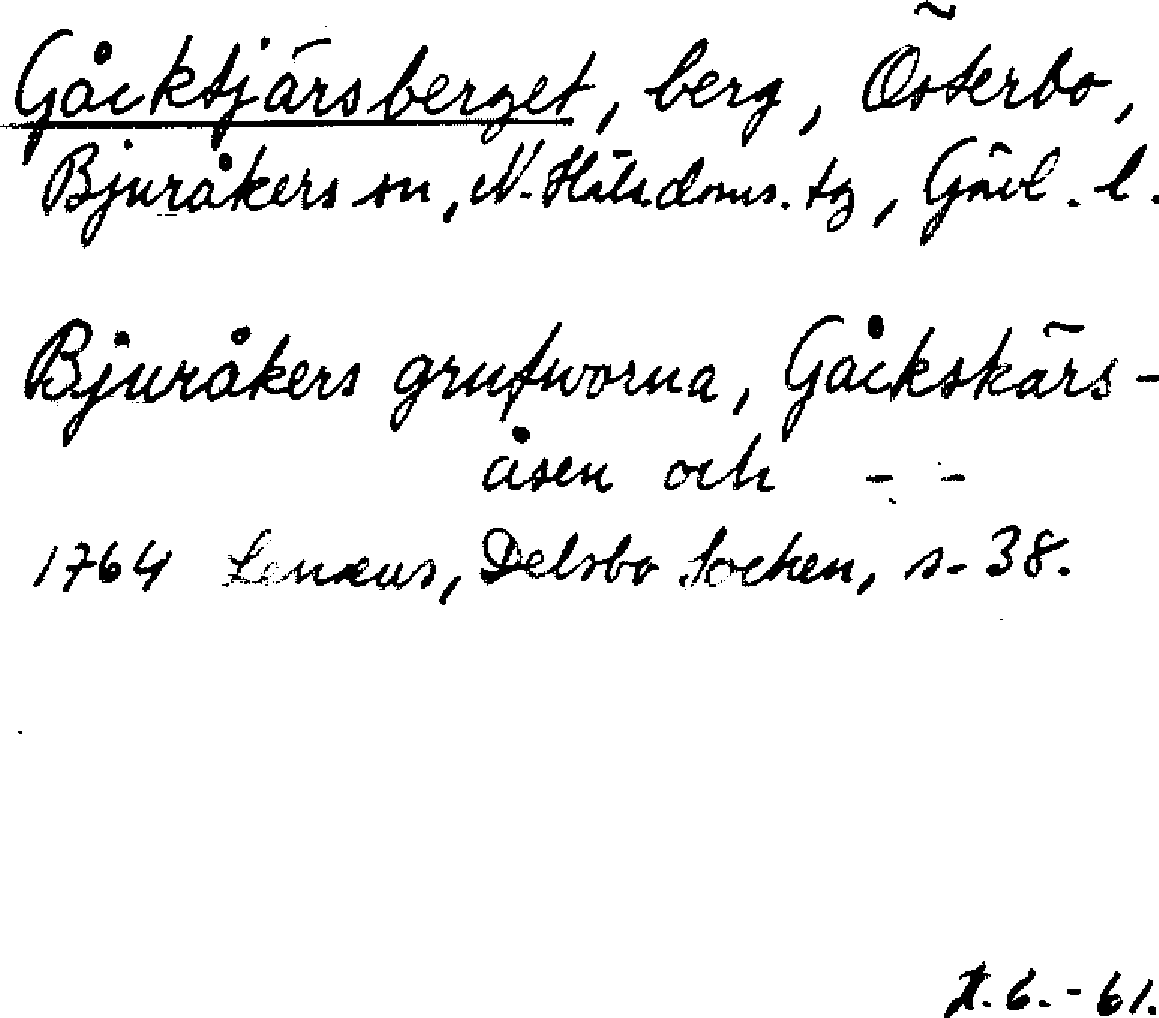 Gåcktjärsberget, berg, Österbo,
Bjuråkers sn, N. Hälsdoms. tg, Gävl. l.
Bjuråkers grufworna, Gåckskärs-
åsen och - -
1764 Lenæus, Delsbo Socken, s. 38.
2.6.-61.